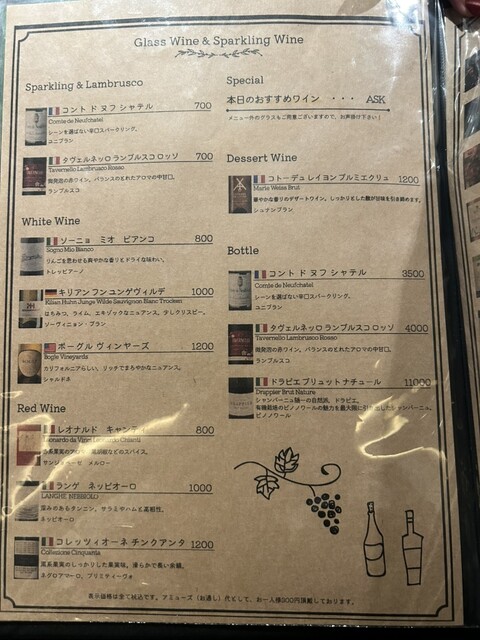 Glass Wine & Sparkling Wine
Sparkling & Lambrusco
コント ド ヌフ シャテル 700
Comte de Neufchatel
レーンを選ばない辛口スパークリング。
ユニブラン
タヴェルネッロ ランブルスコ ロッソ 700
Tavernello Lambrusco Rosso
微発泡の赤ワイン。バランスのとれたアロマの中甘口。
ランブルスコ
White Wine
ソーニョ ミオ ビアンコ 800
Sogno Mio Bianco
りんごを思わせる爽やかな香りとドライな味わい。
トレッビアーノ
キリアン フン ユンゲヴィルデ 1000
Kilian Huhn Junge Wilde Sauvignon Blanc Trocken
はちみつ、ライム、エキゾックなニュアンス。少しクリスピー。
ソーヴィニョン・ブラン
ボーグル ヴィンヤーズ 1200
Bogle Vineyards
カリフォルニアらしい、リッチでまろやかなニュアンス。
シャルドネ
Red Wine
レオナルド キャンティ 800
Leonardo da Vinci Leonardo Chianti
黒胡椒などのスパイス。
サンジョベーゼ メルロー
ランゲ ネッビオーロ 1000
LANGHE NEBBIOLO
深みのあるタンニン。サラミやハムと高相性。
ネッビオーロ
コレッツィオーネ チンクアンタ 1200
Collezione Cinquanta
黒系果実のしっかりした果実味。滑らかで長い余韻。
ネグロアマーロ、プリミティーヴォ
Special
本日のおすすめワイン ・・・ ASK
メニュー外のグラスもご用意ございますので、お声掛け下さい！
Dessert Wine
コトー デュ レイヨン プルミエクリュ 1200
Marie Weiss Brut
華やかな香りのデザートワイン。しっかりとした酸が甘味を引き締めます。
シュナンブラン
Bottle
コント ド ヌフ シャテル 3500
Comte de Neufchatel
レーンを選ばない辛口スパークリング。
ユニブラン
タヴェルネッロ ランブルスコ ロッソ 4000
Tavernello Lambrusco Rosso
微発泡の赤ワイン。バランスのとれたアロマの中甘口。
ランブルスコ
ドラピエ ブリュット ナチュール 11000
Drappier Brut Nature
シャンパーニュ随一の自然派、ドラピエ。
有機栽培のピノノワールの魅力を最大限に引き出したシャンパーニュ。
ピノノワール
表示価格は全て税込です。アミューズ（お通し）代として、お一人様300円頂戴しております。